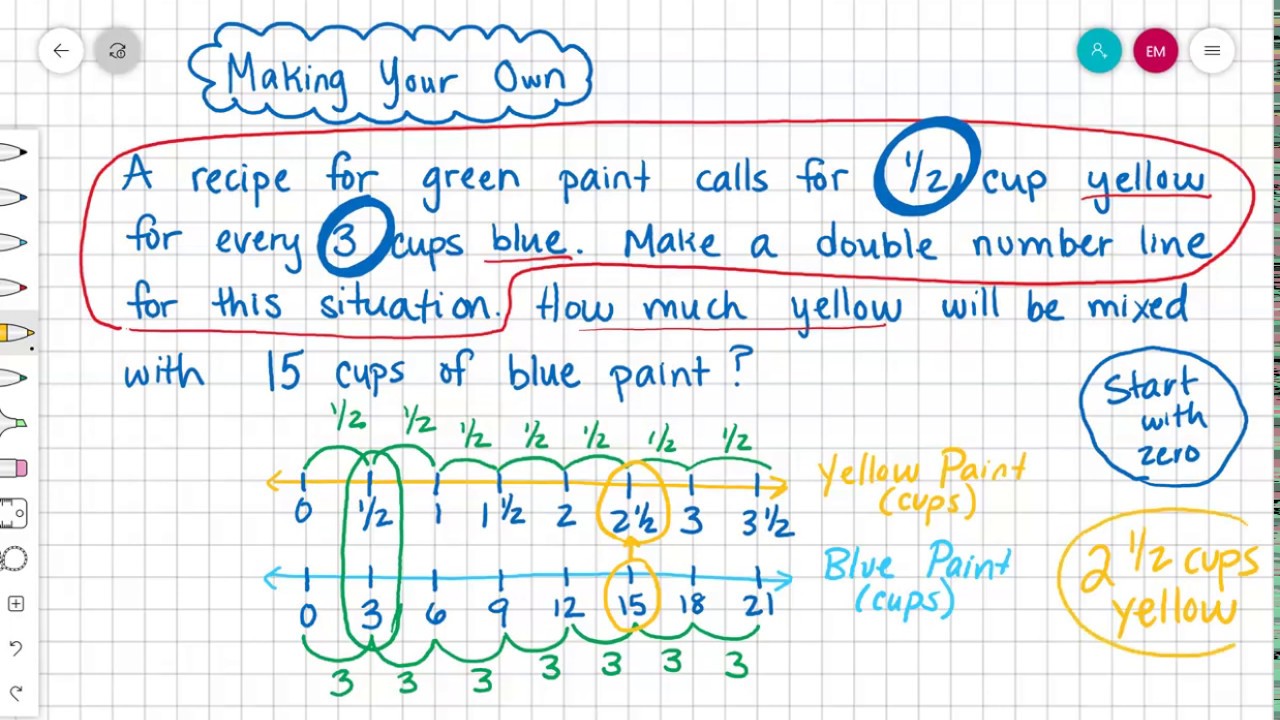 Making Your Own
EM
A recipe for green paint calls for 1/2 cup yellow
for every 3 cups blue. Make a double number line
for this situation. How much yellow will be mixed
with 15 cups of blue paint?
Start
with
zero
1/2 1/2 1/2 1/2 1/2 1/2 1/2
Yellow Paint
(cups)
0 1/2 1 1 1/2 2 2 1/2 3 3 1/2
Blue Paint
(cups)
0 3 6 9 12 15 18 21
3 3 3 3 3 3 3
2 1/2 cups
yellow